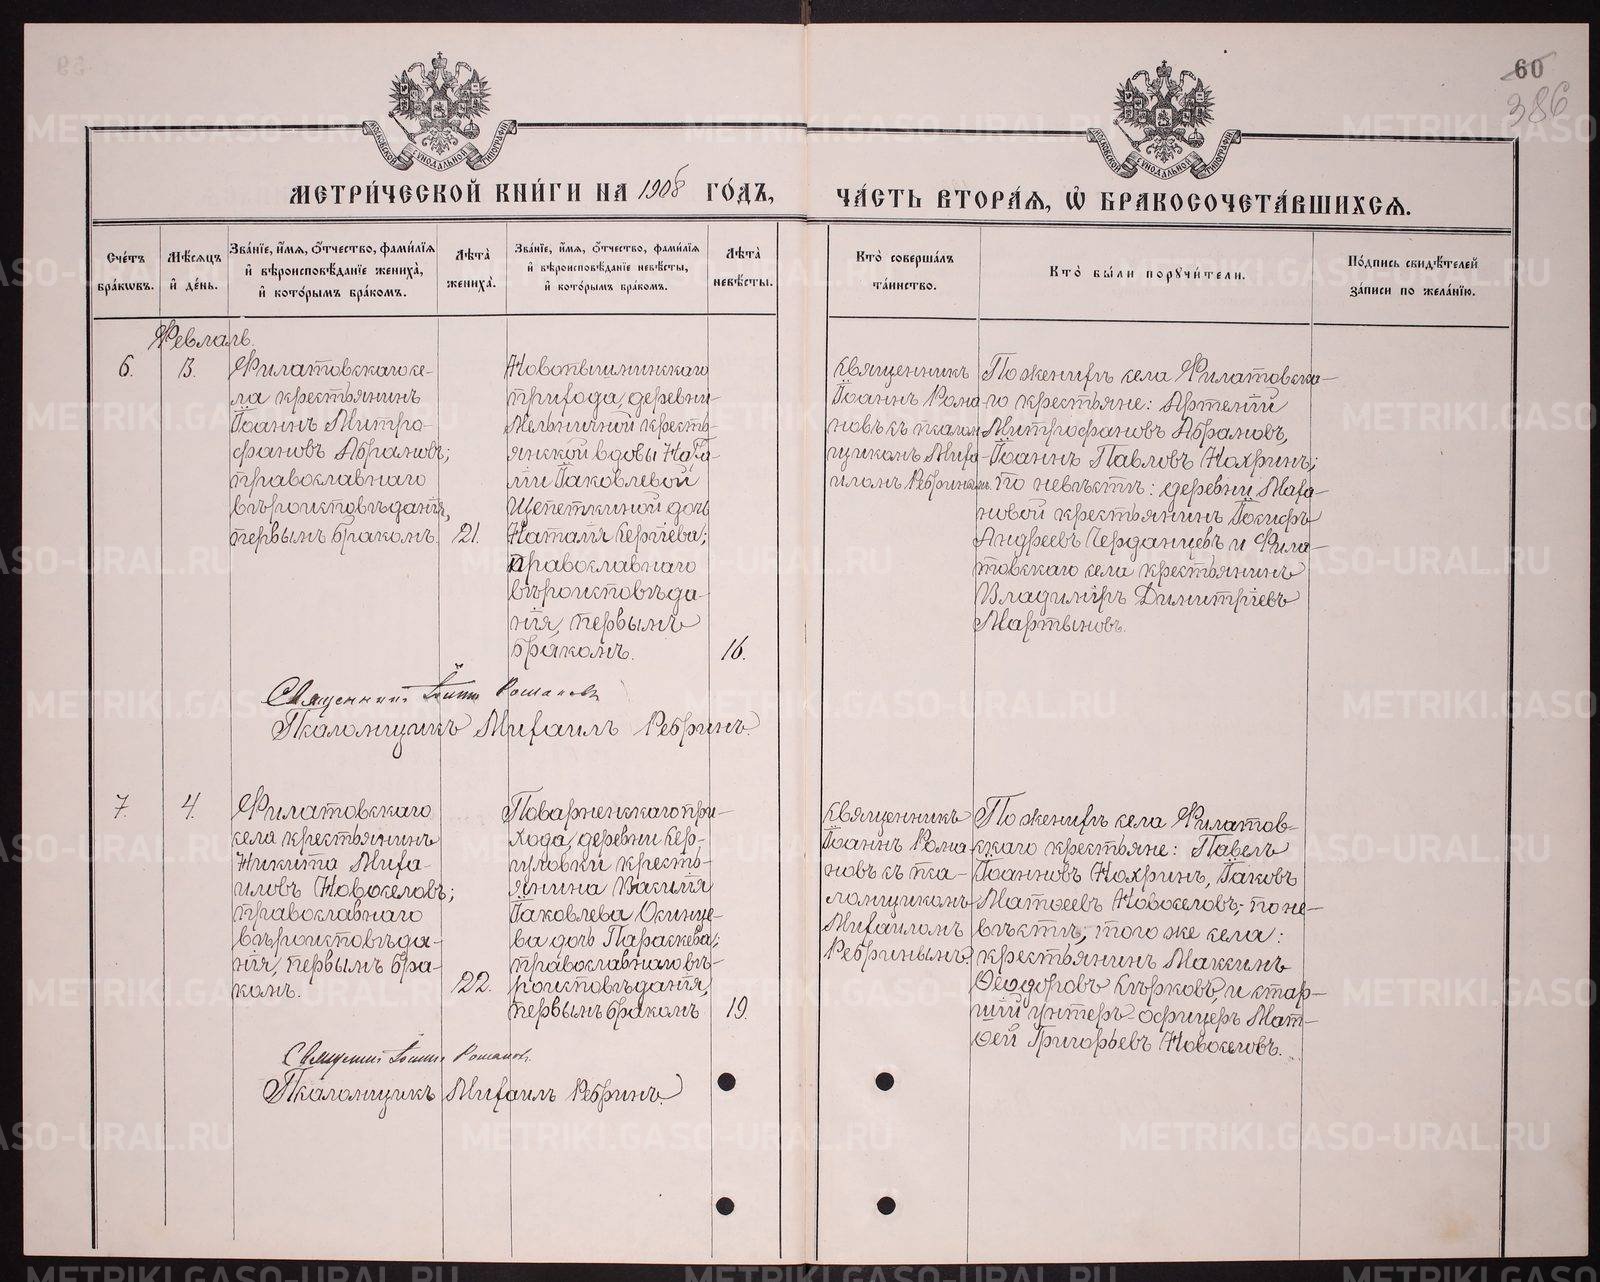 60
386
МОСКОВСКОЙ СѴНОДАЛЬНОЙ ТИПОГРАФІИ
МОСКОВСКОЙ СѴНОДАЛЬНОЙ ТИПОГРАФІИ
МЕТРИ́ЧЕСКОЙ КНИ́ГИ НА 1908 ГО́ДЪ,
ЧА́СТЬ ВТОРА́Я, Ѿ БРАКОСОЧЕТА́ВШИХСЯ.
Сче́тъ бра́ковъ.
Мѣ́сяцъ и́ де́нь.
Зва́нїе, и́мя, ѻ́тчество, фами́лїя и́ вѣроисповѣ́данїе жениха̀, и́ кото́рымъ бра́комъ.
Лѣта̀ жениха̀.
Зва́нїе, и́мя, ѻ́тчество, фами́лїя и́ вѣроисповѣ́данїе невѣ́сты, и́ кото́рымъ бра́комъ.
Лѣта̀ невѣ́сты.
Кто̀ соверша́лъ та́инство.
Кто̀ бы́ли порꙋчи́тели.
По́дпись свидѣ́телей за́писи по жела́нїю.
Февраль.
6.
3.
Филатовскаго се-
ла крестьянинъ
Іоаннъ Митро-
фановъ Абрамовъ;
православнаго
вѣроисповѣданія,
первымъ бракомъ.
21.
Новопышминскаго
прихода, деревни
Мельничной кресть-
янской вдовы Ната-
ліи Іаковлевой
Щепеткиной дочь
Наталія Сергіева;
православнаго
вѣроисповѣда-
нія, первымъ
бракомъ.
16.
Священникъ
Іоаннъ Рома-
новъ съ псалом-
щикомъ Миха-
иломъ Ребринымъ.
По женихѣ села Филатовска-
го крестьяне: Артемій
Митрофановъ Абрамовъ,
Іоаннъ Павловъ Нохринъ;
по невѣстѣ: деревни Маха-
новой крестьянинъ Іосифъ
Андреевъ Черданцевъ и Фила-
товскаго села крестьянинъ
Владиміръ Димитріевъ
Мартыновъ.
Священникъ Іоаннъ Романовъ
Псаломщикъ Михаилъ Ребринъ.
7.
4.
Филатовскаго
села крестьянинъ
Никита Миха-
иловъ Новоселовъ;
православнаго
вѣроисповѣда-
нія, первымъ бра-
комъ.
22.
Поварненскаго при-
хода, деревни Сер-
гуловки кресть-
янина Василія
Іаковлева Осинце-
ва дочь Параскева;
православнаго вѣ-
роисповѣданія,
первымъ бракомъ
19.
Священникъ
Іоаннъ Рома-
новъ съ пса-
ломщикомъ
Михаиломъ
Ребринымъ.
По женихѣ села Филатов-
скаго крестьяне: Павелъ
Іоанновъ Нохринъ, Іаковъ
Матѳеевъ Новоселовъ; по не-
вѣстѣ, того же села:
крестьянинъ Максимъ
Ѳеодоровъ Сѣрковъ, и стар-
шій унтеръ офицеръ Мат-
ѳей Григорьевъ Новоселовъ.
Священникъ Іоаннъ Романовъ.
Псаломщикъ Михаилъ Ребринъ.
METRIKI.GASO-URAL.RU